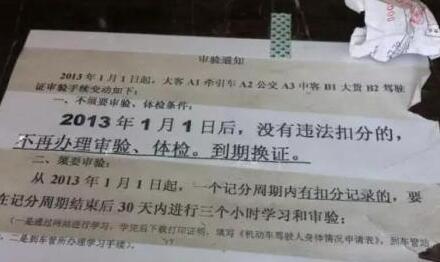 审验通知
2013年1月1日起，大客A1牵引车A2公交A3中客B1大货B2驾驶
证审验手续变动如下：
一、不须要审验、体检条件：
2013年1月1日后，没有违法扣分的，
不再办理审验、体检。到期换证。
二、须要审验：
从2013年1月1日起，一个记分周期内有扣分记录的，要
在记分周期结束后30天内进行三个小时学习和审验：
（一是通过网站进行学习，学完后下载打印证明，填写《机动车驾驶人身体情况申请表》，到车管站
二是到车管所办理学习手续）。